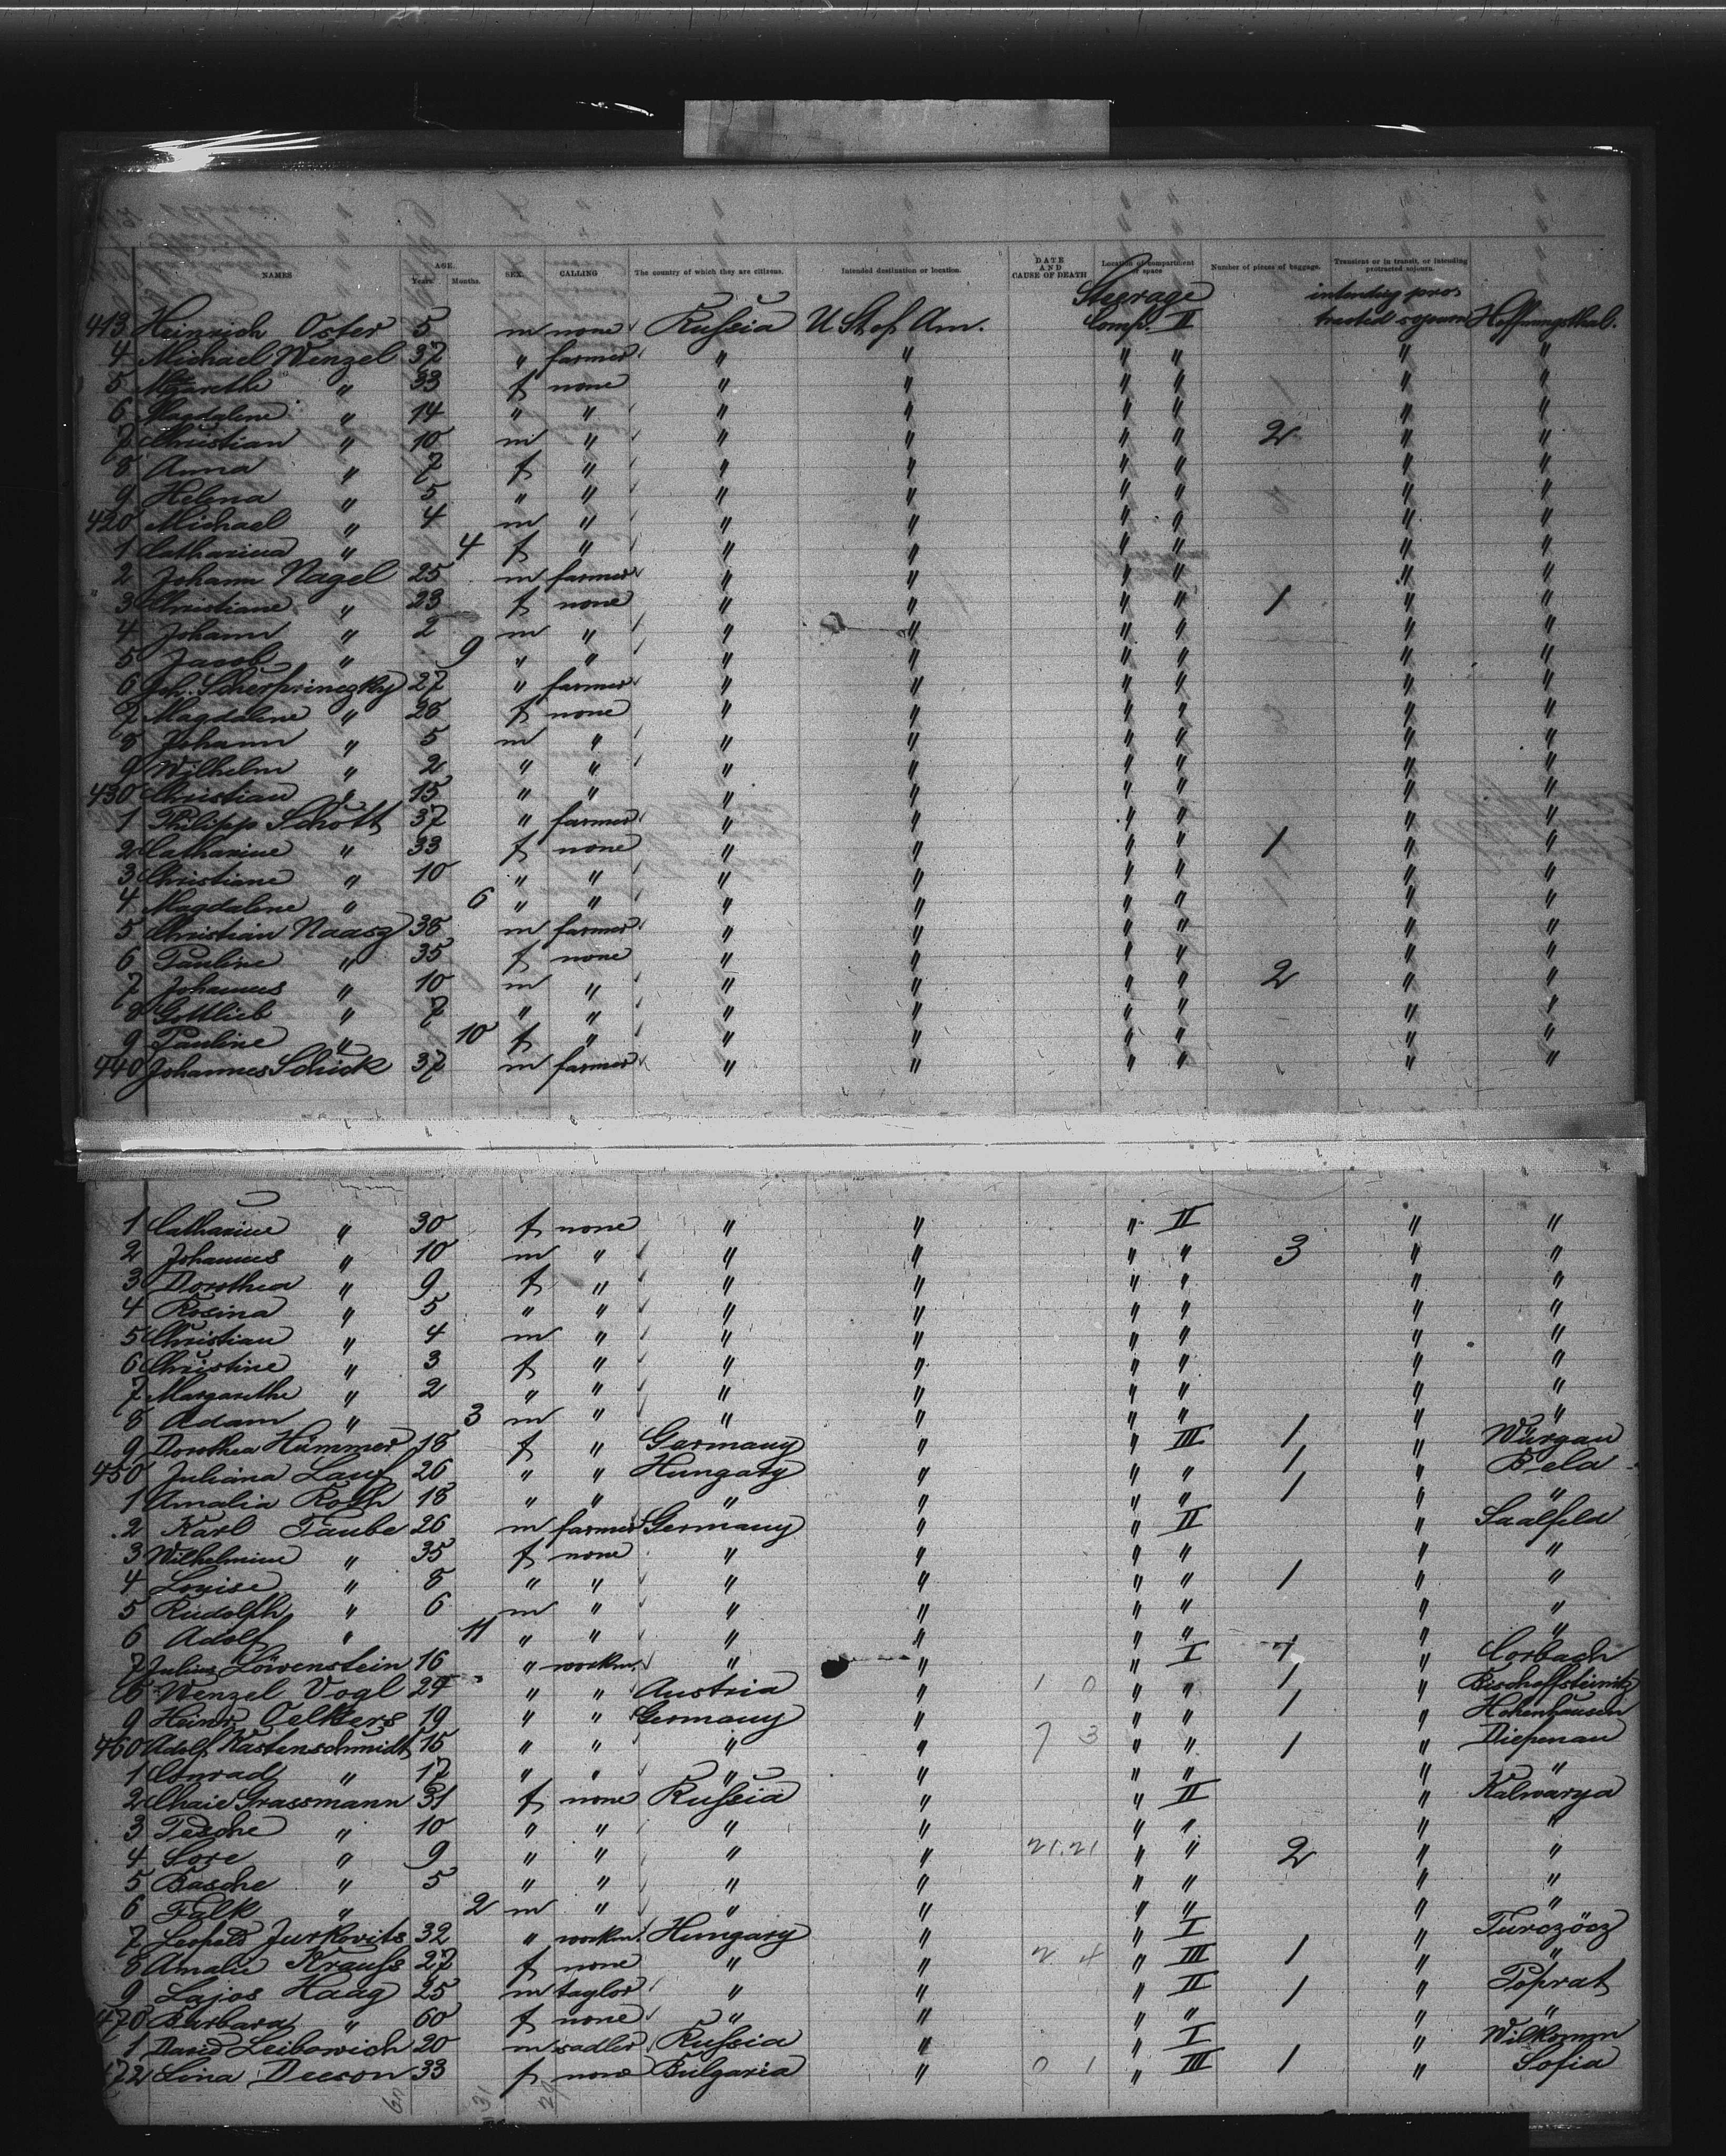 NAMES AGE. Years. Months. SEX. CALLING The country of which they are citizens. Intended destination or location. DATE AND CAUSE OF DEATH Location of compartment or space Number of pieces of baggage. Transient or in transit, or intending protracted sojourn.
Steerage intending pro-
413 Heinrich Oster 5 m none Russia U St of Am. Comp. II tracted sojourn Hoffnungsthal.
4 Michael Wenzel 37 " farmer " " " " " "
5 Mgarethe " 33 f none " " " " " "
6 Magdalene " 14 " " " " " " " "
7 Christian " 10 m " " " " " 2 " "
8 Anna " 7 f " " " " " " "
9 Helena " 5 " " " " " " " "
420 Michael " 4 m " " " " " " "
1 Catharina " 4 f " " " " " " "
2 Johann Nagel 25 m farmer " " " " " "
3 Christiane " 23 f none " " " " 1 " "
4 Johann " 2 m " " " " " " "
5 Jacob " 9 " " " " " " " "
6 Joh. Scherprinezky 27 " farmer " " " " " "
7 Magdalene " 28 f none " " " " " "
8 Johann " 5 m " " " " " " "
9 Wilhelm " 2 " " " " " " " "
430 Christian " 15 " " " " " " " "
1 Philipp Schott 37 " farmer " " " " " "
2 Catharine " 33 f none " " " " 1 " "
3 Christiane " 10 " " " " " " " "
4 Magdalene " 6 " " " " " " " "
5 Christian Naasz 38 m farmer " " " " " "
6 Pauline " 35 f none " " " " " "
7 Johannes " 10 m " " " " " 2 " "
8 Gottlieb " 7 " " " " " " " "
9 Pauline " 10 f " " " " " " "
440 Johannes Schick 37 m farmer " " " " " "
1 Catharine " 30 f none " " " II " "
2 Johannes " 10 m " " " " " 3 " "
3 Dorothea " 9 f " " " " " " "
4 Rosina " 5 " " " " " " " "
5 Christian " 4 m " " " " " " "
6 Christine " 3 f " " " " " " "
7 Margarethe " 2 " " " " " " " "
8 Adam " 3 m " " " " " " "
9 Dorothea Hümmer 18 f " Germany " " III 1 " Würgau
450 Juliana Lauf 26 " " Hungary " " " 1 " Bela
1 Amalia Roth 18 " " " " " " 1 " "
2 Karl Taube 26 m farmer Germany " " II " Saalfeld
3 Wilhelmine " 35 f none " " " " " "
4 Louise " 8 " " " " " " 1 " "
5 Rudolph " 6 m " " " " " " "
6 Adolf " 11 " " " " " " " "
7 Julius Löwenstein 16 " workm. " " " I 1 " Corbach
8 Wenzel Vogl 24 " " Austria " 1 0 " " 1 " Bischoffsteinitz
9 Heinr. Oelkers 19 " " Germany " " " 1 " Hohenhausen
460 Adolf Kastenschmidt 15 " " " " 7 3 " " 1 " Diepenau
1 Conrad " 17 " " " " " " " "
2 Chaie Grassmann 31 f none Russia " " II " Kalwarya
3 Tesche " 10 " " " " " " " "
4 Sore " 9 " " " " 21.21 " " 2 " "
5 Basche " 5 " " " " " " " "
6 Falk " 2 m " " " " " " "
7 Leopold Jurkovits 32 " workm. Hungary " " I " Turczöcz
8 Amalie Krauss 27 f none " " 2 4 " III 1 " "
9 Lajos Haag 25 m taylor " " " II 1 " Poprat
470 Barbara " 60 f none " " " " " "
1 David Leibowich 20 m sadler Russia " " I " Wilkomm
472 Lina Deeson 33 f none Bulgaria " 0 1 " III 1 " Sofia